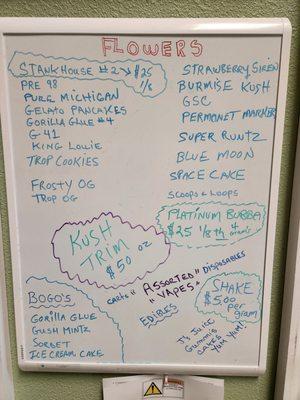 FLOWERS
STANKHOUSE #2 $25
1/8
PRE 98
PURE MICHIGAN
GELATO PANCAKES
GORILLA GLUE #4
G 41
KING LOUIE
TROP COOKIES
FROSTY OG
TROP OG
STRAWBERRY SIREN
BURMISE KUSH
GSC
PERMONET MARKER
SUPER RUNTZ
BLUE MOON
SPACE CAKE
SCOOPS & LOOPS
PLATINUM BUBBA
$25 1/8th 4 grams
KUSH
TRIM
$50 OZ
CARTS "ASSORTED" DISPOSABLES
"VAPES"
EDIBLES
J's JUICE
GUMMIES
CAKES
YUM YUM!
SHAKE
$5.00
per
gram
BOGO'S
GORILLA GLUE
GUSH MINTZ
SORBET
ICE CREAM CAKE